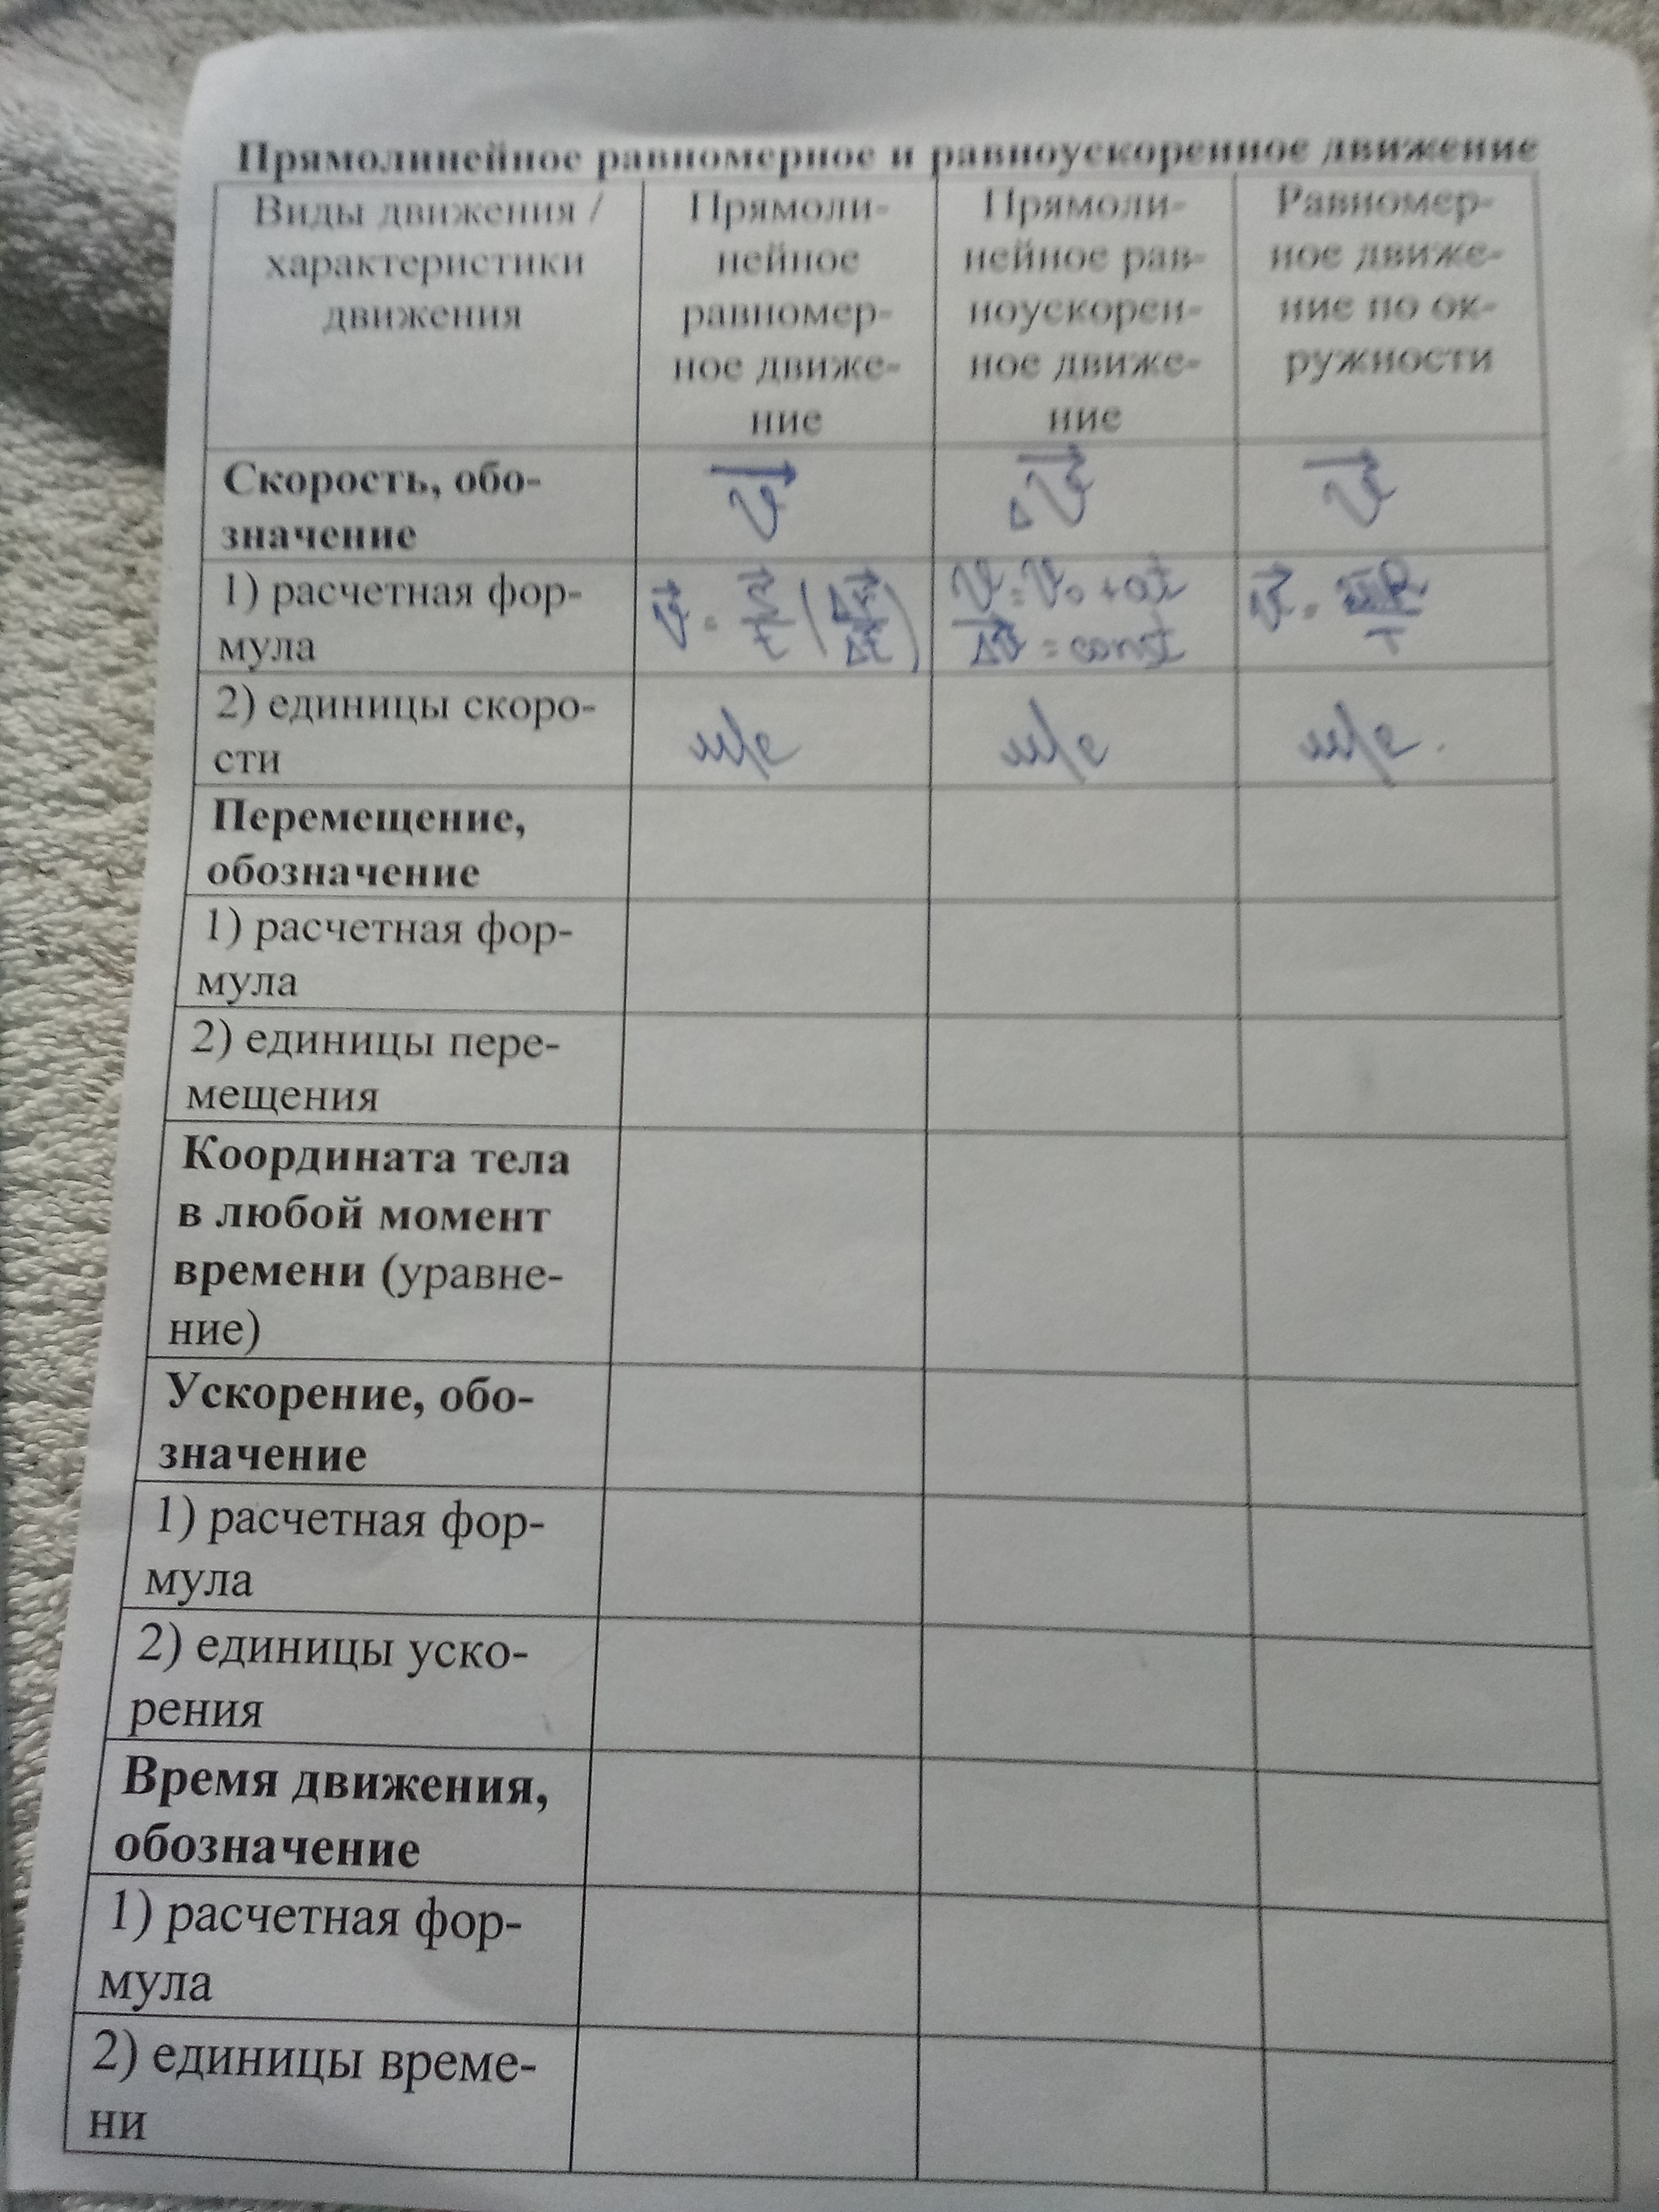 Прямолинейное равномерное и равноускоренное движение
Виды движения /
характеристики
движения
Прямоли-
нейное
равномер-
ное движе-
ние
Прямоли-
нейное рав-
ноускорен-
ное движе-
ние
Равномер-
ное движе-
ние по ок-
ружности
Скорость, обо-
значение
1) расчетная фор-
мула
2) единицы скоро-
сти
м/с
м/с
м/с
Перемещение,
обозначение
1) расчетная фор-
мула
2) единицы пере-
мещения
Координата тела
в любой момент
времени (уравне-
ние)
Ускорение, обо-
значение
1) расчетная фор-
мула
2) единицы уско-
рения
Время движения,
обозначение
1) расчетная фор-
мула
2) единицы време-
ни